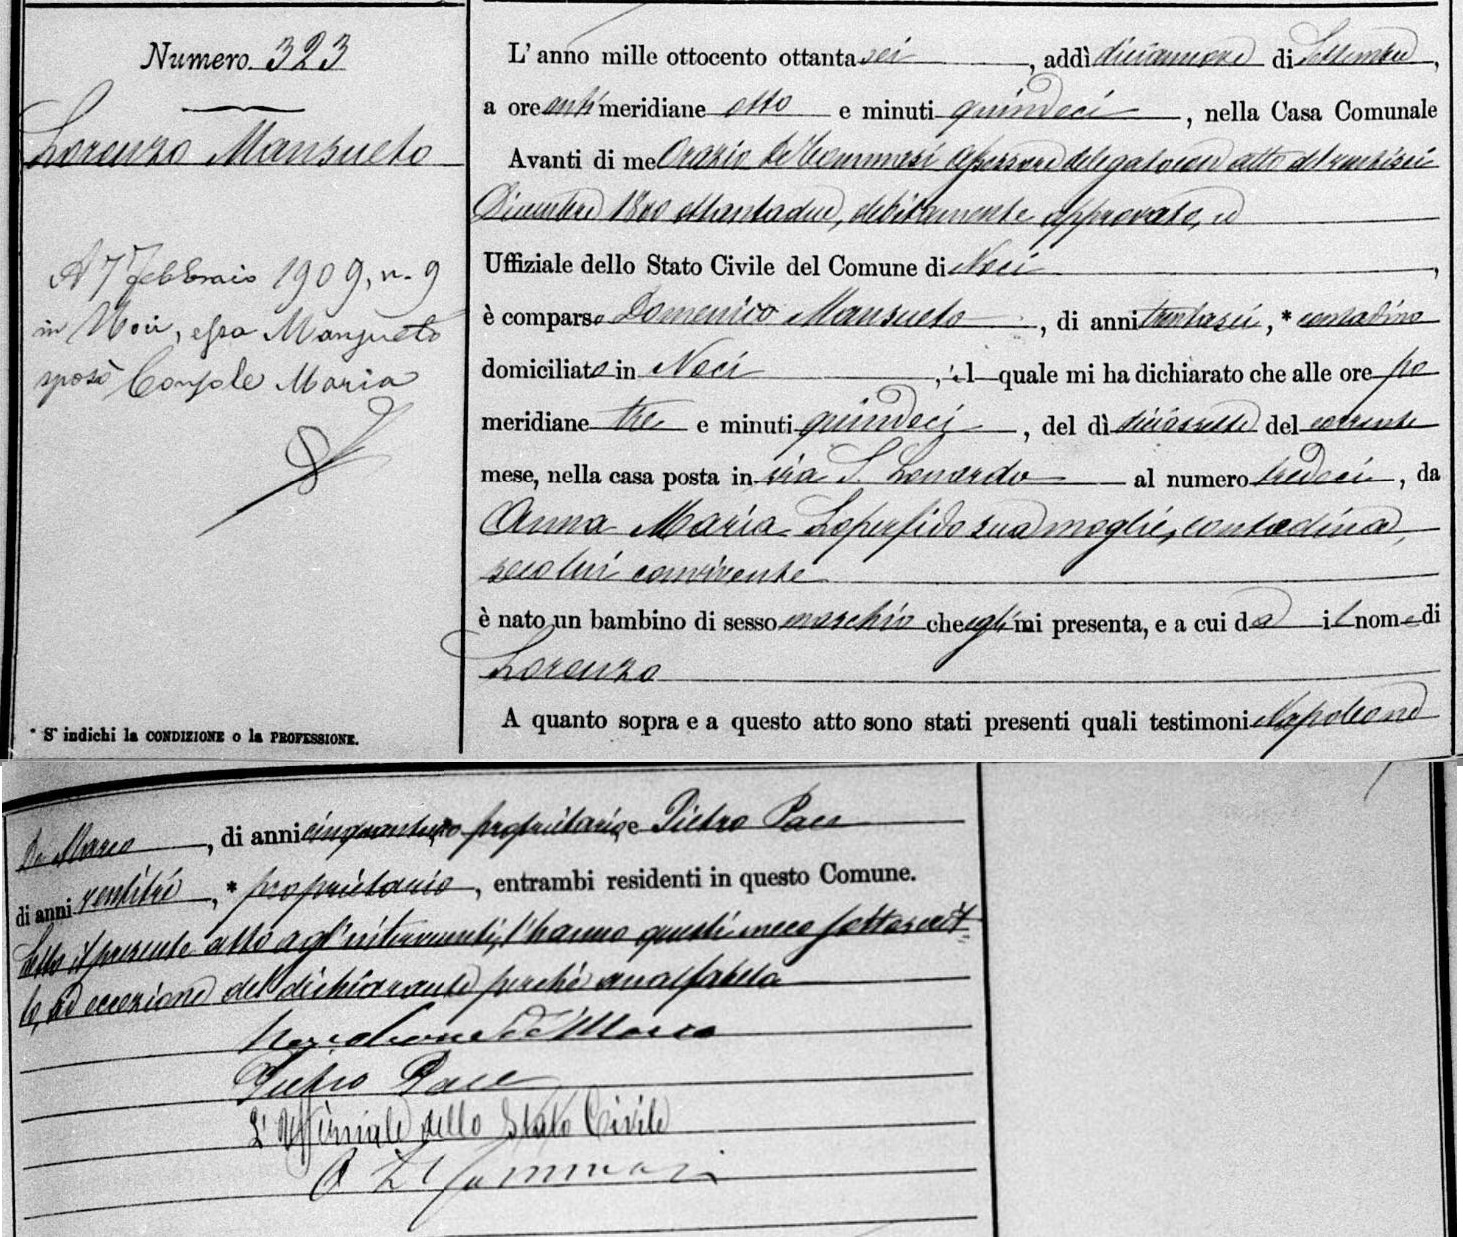 Numero 323
Lorenzo Mansueto
A 7 Febbraio 1909, n. 9
in Noci, esso Mansueto
sposò Console Maria
* S' indichi la CONDIZIONE o la PROFESSIONE.
L' anno mille ottocento ottantasei, addì diciannove di Settembre,
a ore antimeridiane otto e minuti quindeci, nella Casa Comunale
Avanti di me Orazio De Tommasi Assessore delegato con atto del ventisei
Dicembre 1800 ottantadue, debitamente approvato, ed
Uffiziale dello Stato Civile del Comune di Noci,
è comparso Domenico Mansueto, di anni trentasei, * contadino
domiciliato in Noci, il quale mi ha dichiarato che alle ore po
meridiane tre e minuti quindeci, del dì diciassette del corrente
mese, nella casa posta in via S. Leonardo al numero tredeci, da
Anna Maria Loperfido sua moglie, contadina,
seco lui convivente
è nato un bambino di sesso maschio che egli mi presenta, e a cui dà il nome di
Lorenzo
A quanto sopra e a questo atto sono stati presenti quali testimoni Napoleone
De Marco, di anni cinquantuno proprietario, e Pietro Pace
di anni ventitre, * proprietario, entrambi residenti in questo Comune.
Letto il presente atto agl'intervenuti, l'hanno questi meco sottoscrit=
to, ad eccezione del dichiarante perchè analfabeta
Napoleone de Marco
Pietro Pace
L'Uffiziale dello Stato Civile
O De Tommasi